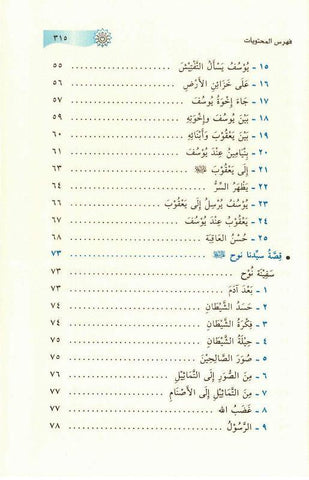 فهرس المحتويات ٣١٥
١٥ - يُوْسُفُ يَسْأَلُ التَّفْتِيْشَ ..................... ٥٥
١٦ - عَلَى خَزَائِنِ الأَرْضِ ..................... ٥٦
١٧ - جَاءَ إِخْوَةُ يُوسُفَ ..................... ٥٧
١٨ - بَيْنَ يُوسُفَ وإِخْوَتِهِ ..................... ٥٩
١٩ - بَيْنَ يَعْقُوْبَ وَأَبْنَائِهِ ..................... ٦٠
٢٠ - بِنْيَامِينُ عِنْدَ يُوْسُفَ ..................... ٦١
٢١ - إِلَى يَعْقُوْبَ ﷺ ..................... ٦٣
٢٢ - يَظْهَرُ السِّرُّ ..................... ٦٤
٢٣ - يُوْسُفُ يُرْسِلُ إِلَى يَعْقُوْبَ ..................... ٦٦
٢٤ - يَعْقُوْبُ عِنْدَ يُوْسُفَ ..................... ٦٧
٢٥ - حُسْنُ العَاقِبَةِ ..................... ٦٨
• قِصَّةُ سَيِّدنا نوح ﷺ ..................... ٧٣
سَفِيْنَة نُوْح ..................... ٧٣
١ - بَعْدَ آدَمَ ..................... ٧٣
٢ - حَسَدُ الشَّيْطَانِ ..................... ٧٤
٣ - فِكْرَةُ الشَّيْطَانِ ..................... ٧٤
٤ - حِيْلَةُ الشَّيْطَانِ ..................... ٧٥
٥ - صُوَرُ الصَّالِحِيْنَ ..................... ٧٥
٦ - مِنَ الصُّوَرِ إِلَى التَّمَاثِيْلِ ..................... ٧٦
٧ - مِنَ التَّمَاثِيْلِ إِلَى الأَصْنَامِ ..................... ٧٧
٨ - غَضَبُ الله ..................... ٧٧
٩ - الرَّسُوْلُ ..................... ٧٨